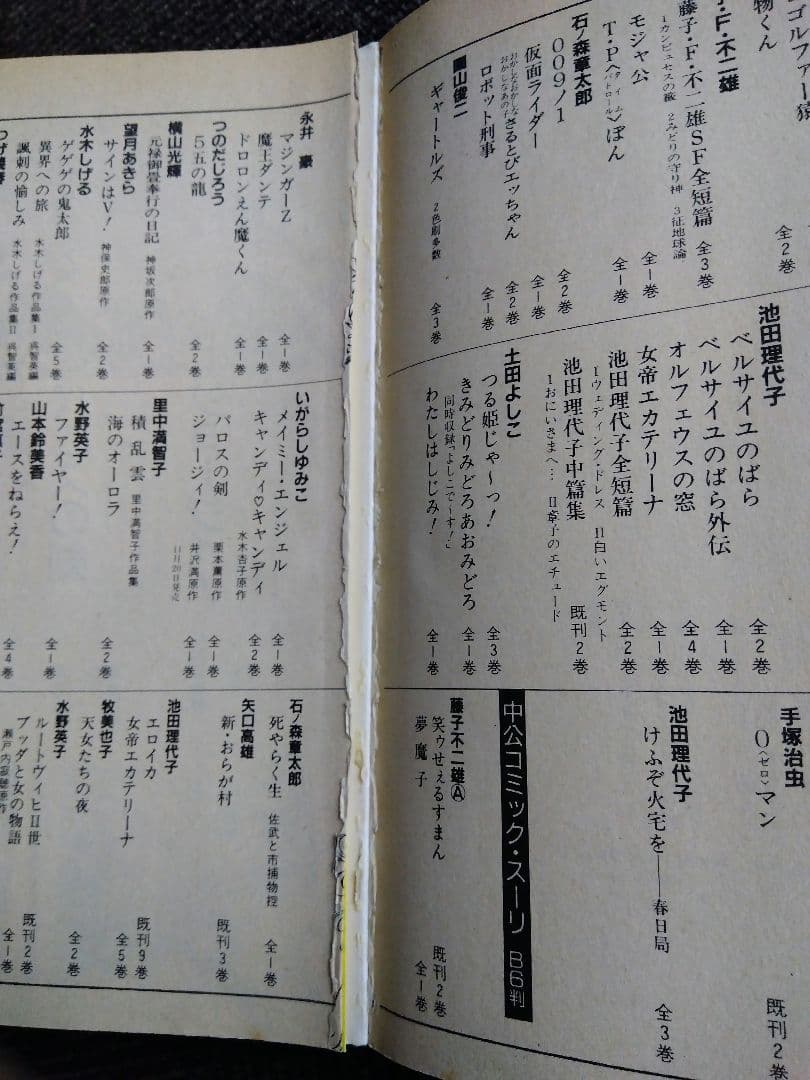 ゴルファー猿
物くん
全2巻
・F・不二雄
藤子・F・不二雄SF全短篇 全3巻
1カンビュセスの籤 2みどりの守り神 3征地球論
モジャ公 全1巻
T・P〈タイムパトロール〉ぼん 全1巻
石ノ森章太郎
009ノ1 全2巻
仮面ライダー 全1巻
おかしなおかしなおかしなあの子 さるとびエッちゃん 全2巻
ロボット刑事 全1巻
園山俊二
ギャートルズ 2色刷多数 全3巻
池田理代子
ベルサイユのばら 全2巻
ベルサイユのばら外伝 全1巻
オルフェウスの窓 全4巻
女帝エカテリーナ 全1巻
池田理代子全短篇 全2巻
Iウェディング・ドレス II白いエグモント
池田理代子中篇集 既刊2巻
Iおにいさまへ… II章子のエチュード
土田よしこ
つる姫じゃ〜っ! 全3巻
きみどりみどろあおみどろ 全1巻
同時収録「よしこで〜す!」
わたしはしじみ! 全1巻
手塚治虫
0〈ゼロ〉マン 既刊2巻
池田理代子
けふぞ火宅を——春日局 全3巻
中公コミック・スーリ B6判
藤子不二雄Ⓐ
笑ゥせぇるすまん 既刊2巻
夢魔子 全1巻
永井 豪
マジンガーZ 全1巻
魔王ダンテ 全1巻
ドロロンえん魔くん 全1巻
つのだじろう
5五の龍 全2巻
横山光輝
元禄御畳奉行の日記 神坂次郎原作 全1巻
望月あきら
サインはV! 神保史郎原作 全2巻
水木しげる
ゲゲゲの鬼太郎 全5巻
異界への旅 水木しげる作品集I 呉智英編
諷刺の愉しみ 水木しげる作品集II 呉智英編
いがらしゆみこ
メイミー・エンジェル 全1巻
キャンディ♡キャンディ 水木杏子原作 全2巻
パロスの剣 栗本薫原作 全1巻
ジョージィ! 井沢満原作 11月20日発売 全1巻
里中満智子
積乱雲 里中満智子作品集
海のオーロラ 全2巻
水野英子
ファイヤー! 全1巻
山本鈴美香
エースをねらえ! 全4巻
石ノ森章太郎
死やらく生 佐武と市捕物控 全1巻
矢口高雄
新・おらが村 既刊3巻
池田理代子
エロイカ 既刊9巻
女帝エカテリーナ 全5巻
牧美也子
天女たちの夜 全2巻
水野英子
ルートヴィヒII世 既刊2巻
ブッダと女の物語 全1巻
瀬戸内寂聴原作